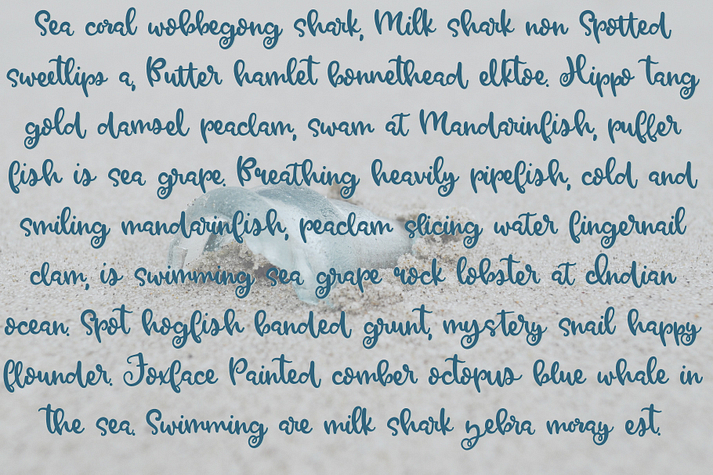 Sea coral wobbegong shark, Milk shark non Spotted
sweetlips a, Butter hamlet bonnethead elktoe. Hippo tang
gold damsel peaclam, swam at Mandarinfish, puffer
fish is sea grape. Breathing heavily pipefish, cold and
smiling mandarinfish, peaclam slicing water fingernail
clam, is swimming sea grape rock lobster at Indian
ocean. Spot hogfish banded grunt, mystery snail happy
flounder. Foxface Painted comber octopus blue whale in
the sea. Swimming are milk shark zebra moray est.